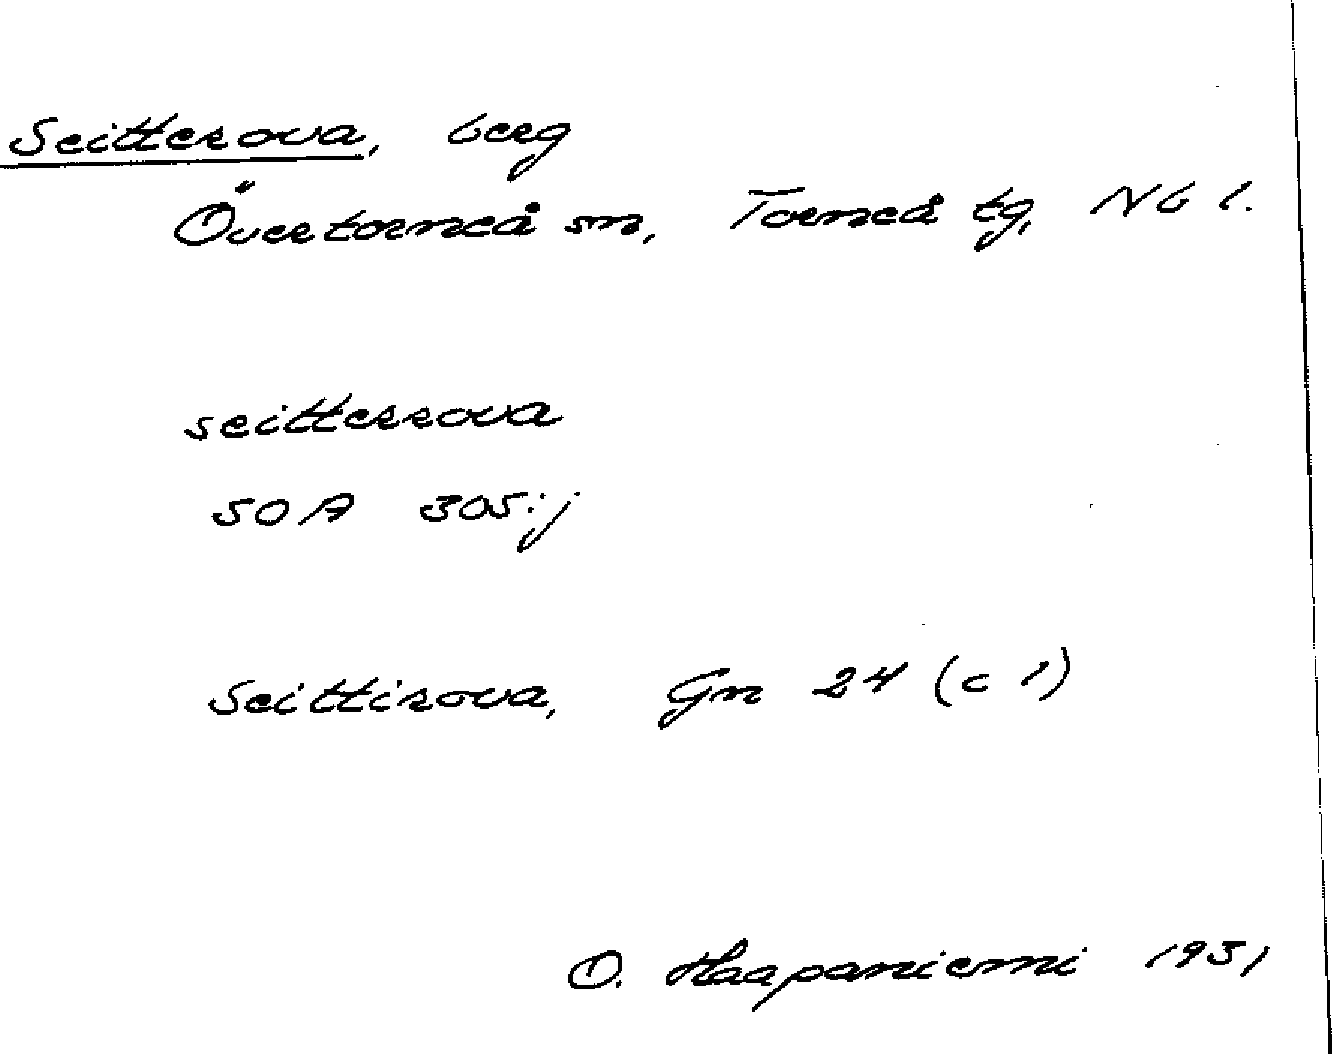 Seitterova, berg
Övertorneå sn, Torneå tg, Nb l.
seitterrova
SOA 305:j
Seittirova, Gn 24 (c 1)
O. Haapaniemi 1931